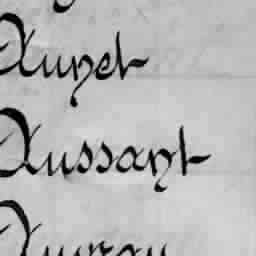 Aunet
Aussant